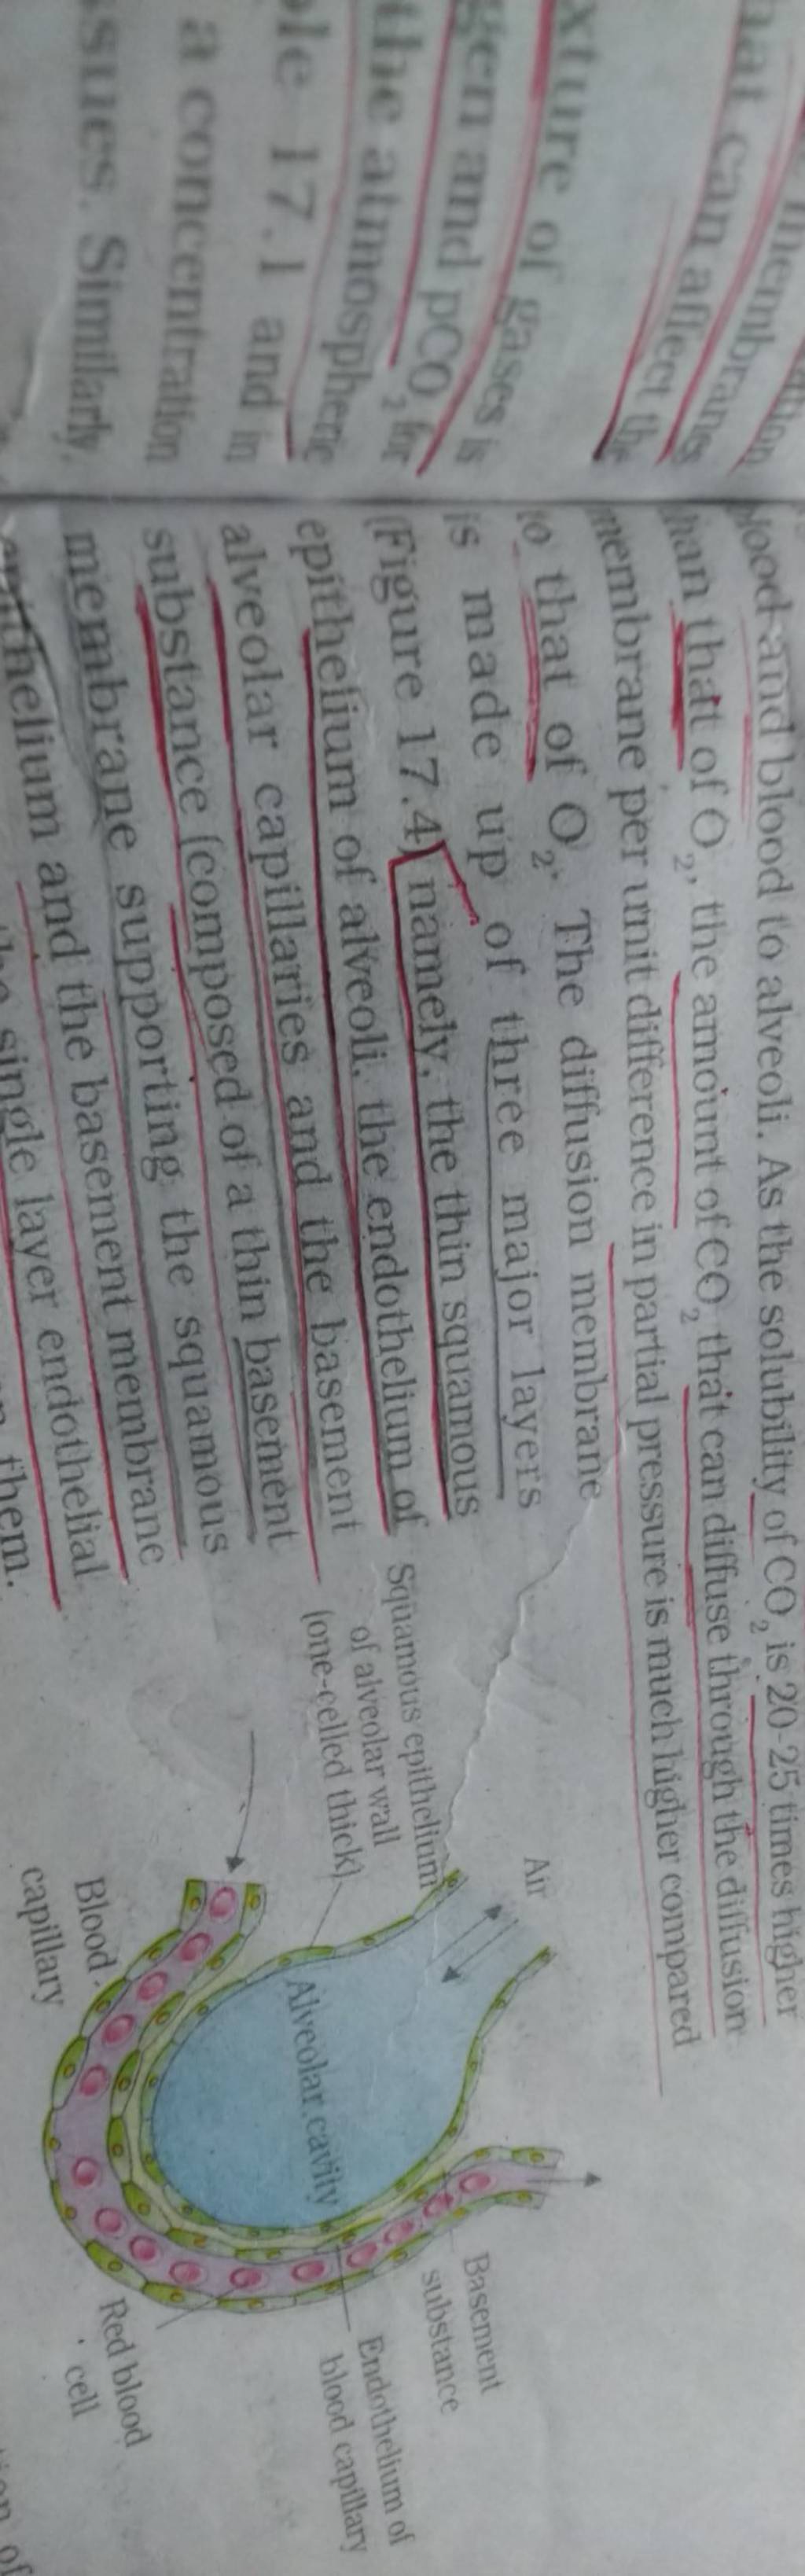 membranes
that can affect the
xture of gases is
gen and pCO2 for
the atmospheric
le 17.1 and in
a concentration
ssues. Similarly,
blood and blood to alveoli. As the solubility of CO2 is 20-25 times higher
than that of O2, the amount of CO2 that can diffuse through the diffusion
membrane per unit difference in partial pressure is much higher compared
to that of O2. The diffusion membrane
is made up of three major layers
(Figure 17.4) namely, the thin squamous
epithelium of alveoli, the endothelium of
alveolar capillaries and the basement
substance (composed of a thin basement
membrane supporting the squamous
epithelium and the basement membrane
single layer endothelial
them.
Air
Squamous epithelium
of alveolar wall
(one-celled thick)
Alveolar cavity
Blood
capillary
Basement
substance
Endothelium of
blood capillary
Red blood
cell
of